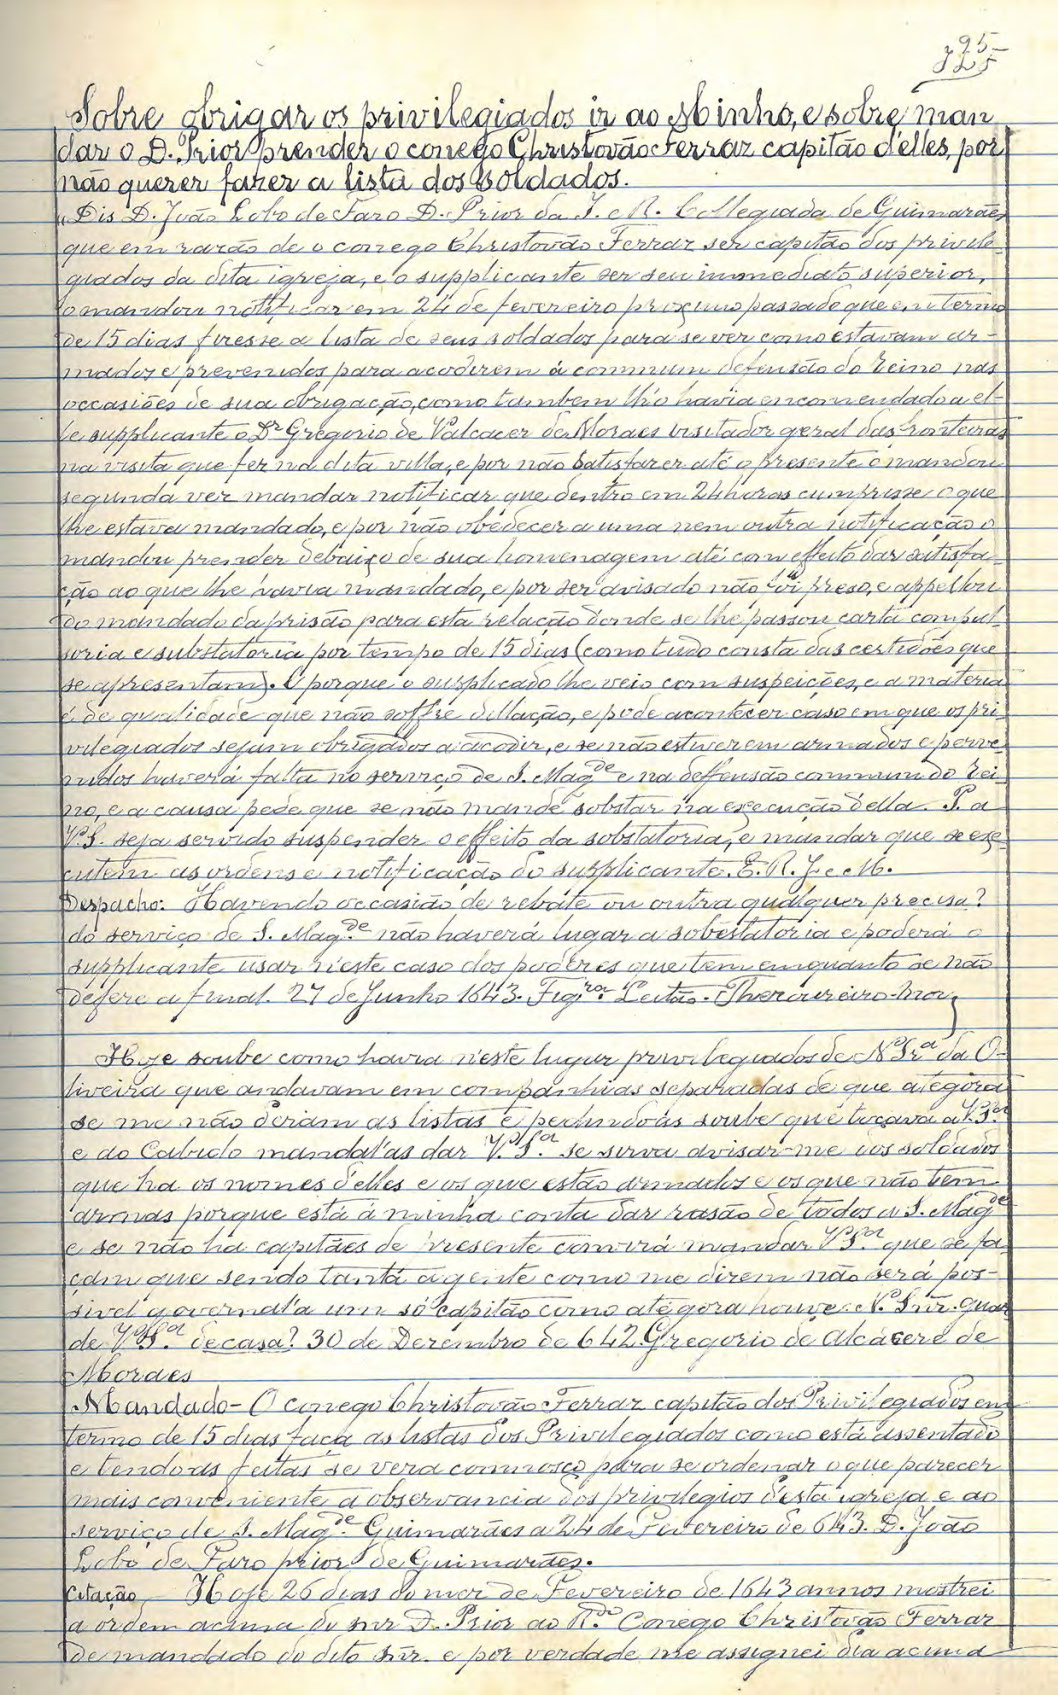 95
325
Sobre obrigar os privilegiados ir ao Minho, e sobre man
dar o D. Prior prender o conego Christovão Ferraz capitão d'elles, por
não querer fazer a lista dos soldados.
„Dis D. João Lobo de Faro D. Prior da I. e R. Collegiada de Guimarães,
que em razão de o conego Christovão Ferraz ser capitão dos privile-
giados da dita igreja, e o supplicante ser seu immediato superior,
o mandou notificar em 24 de fevereiro proximo passado que em termo
de 15 dias fizesse a lista de seus soldados para se ver como estavam ar-
mados e prevenidos para acodirem á commum defensão do reino nas
occasiões de sua obrigação, como tambem lh'o havia encomendado a el-
le supplicante o Dr Gregorio de Valcacer de Moraes visitador geral das fronteiras
na visita que fez na dita villa, e por não satisfazer até o presente o mandou
segunda vez mandar notificar que dentro em 24 horas cumprisse o que
lhe estava mandado, e por não obedecer a uma nem outra notificação o
mandou prender debaixo de sua homenagem até com effeito dar satisfa-
ção ao que lhe havia mandado, e por ser avisado não foi preso, e appellou
do mandado da prisão para esta relação donde se lhe passou carta compul-
soria e substatoria por tempo de 15 dias (como tudo consta das certidões que
se apresentam). E porque o supplicado lhe veio com suspeições, e a materia
é de qualidade que não soffre dillação, e pode acontecer caso em que os pri-
vilegiados sejam obrigados a acodir, e se não estiverem armados e perve-
nidos haverá falta no serviço de S. Magde e na deffensão commum do rei-
no, e a causa pede que se não mande sobstar na execução d'ella. P. a
V.S. seja servido suspender o effeito da sobstatoria, e mandar que se exe-
cutem as ordens e notificação do supplicante. E. R. J. e M.
Despacho: Havendo occasião de rebate ou outra qualquer precisa?
do serviço de S. Magde não haverá lugar a sobestatoria e poderá o
supplicante usar n'este caso dos poderes que tem emquanto se não
defere a final. 27 de Junho 1643. Figra. Leitão. Thezoureiro-mor,
Hoje soube como havia n'este lugar privilegiados de N. Sra da O-
liveira que andavam em companhias separadas de que ategora
se me não deram as listas e pedindo-as soube que tocava a V. Sa
e ao Cabido mandal'as dar V. Sa. se sirva avisar-me dos soldados
que ha os nomes d'elles e os que estão armados e os que não tem
armas porque está á minha conta dar rasão de todos a S. Magde
e se não ha capitães de presente convirá mandar V. Sa. que se fa-
çam que sendo tanta a gente como me dizem não será pos-
sivel governal'a um só capitão como atégora houve. N. Snr. guar
de V. Sa. de casa? 30 de Dezembro de 642. Gregorio de Alcácere de
Moraes
Mandado - O conego Christovão Ferraz capitão dos Privilegiados em
termo de 15 dias faça as listas dos Privilegiados como está assentado
e tendo-as feitas se verá comnosco para se ordenar o que parecer
mais conveniente a observancia dos privilegios d'esta igreja e ao
serviço de S. Magde. Guimarães a 24 de Fevereiro de 643. D. João
Lobo de Faro prior de Guimarães.
Citação - Hoje 26 dias do mez de Fevereiro de 1643 annos mostrei
a ordem acima do snr D. Prior ao Rdo. Conego Christovão Ferraz
de mandado do dito snr. e por verdade me assignei dia acima